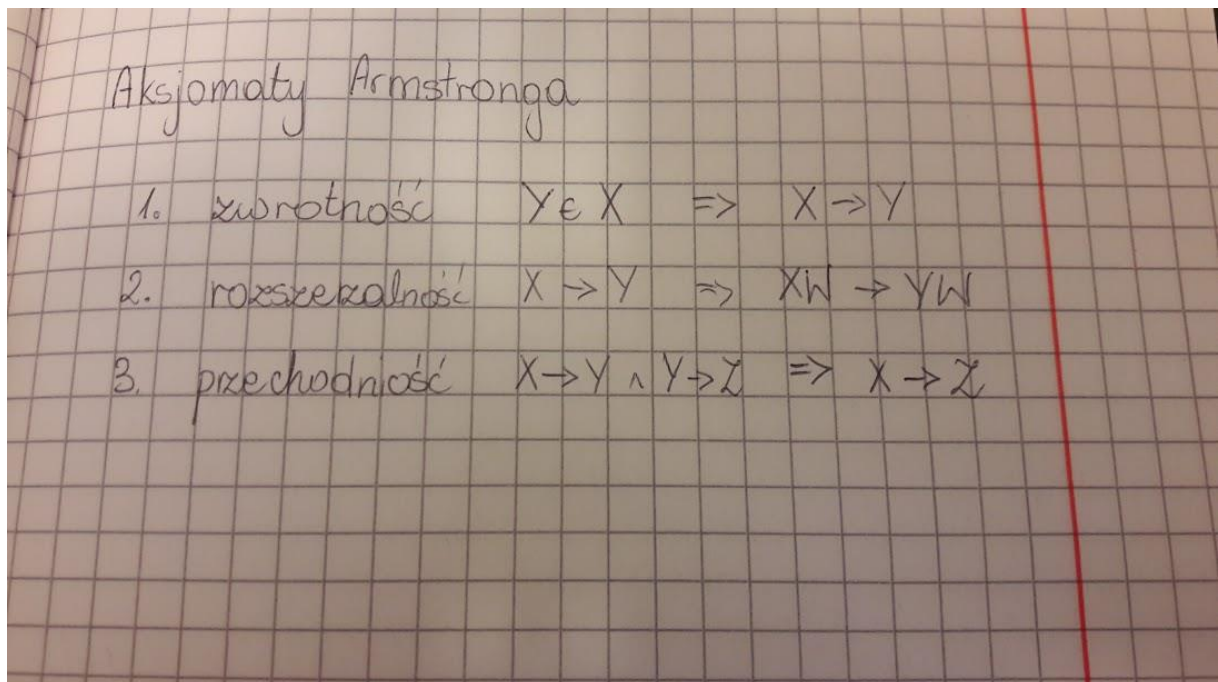 Aksjomaty Armstronga
1. zwrotność Y ∈ X => X → Y
2. rozszerzalność X → Y => XW → YW
3. przechodniość X → Y ∧ Y → Z => X → Z